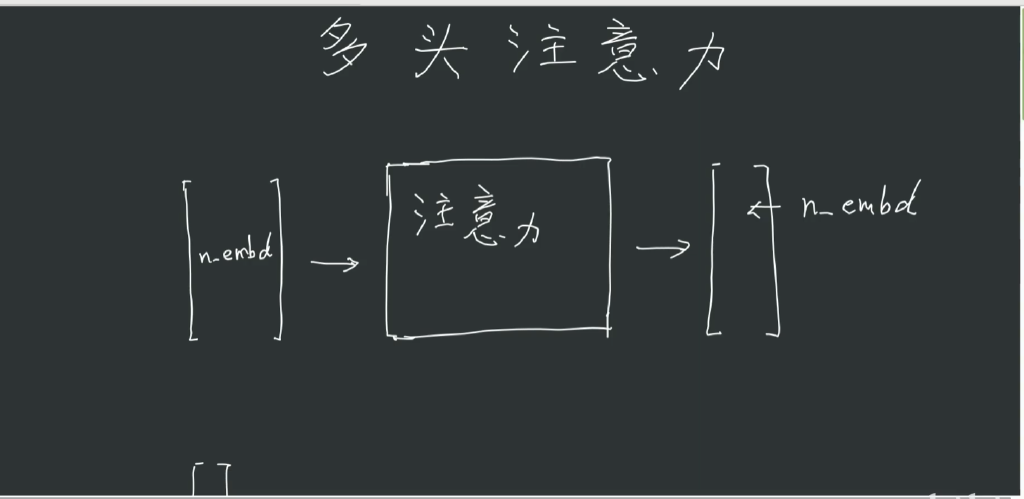 多头注意力
n_embd
注意力
n_embd